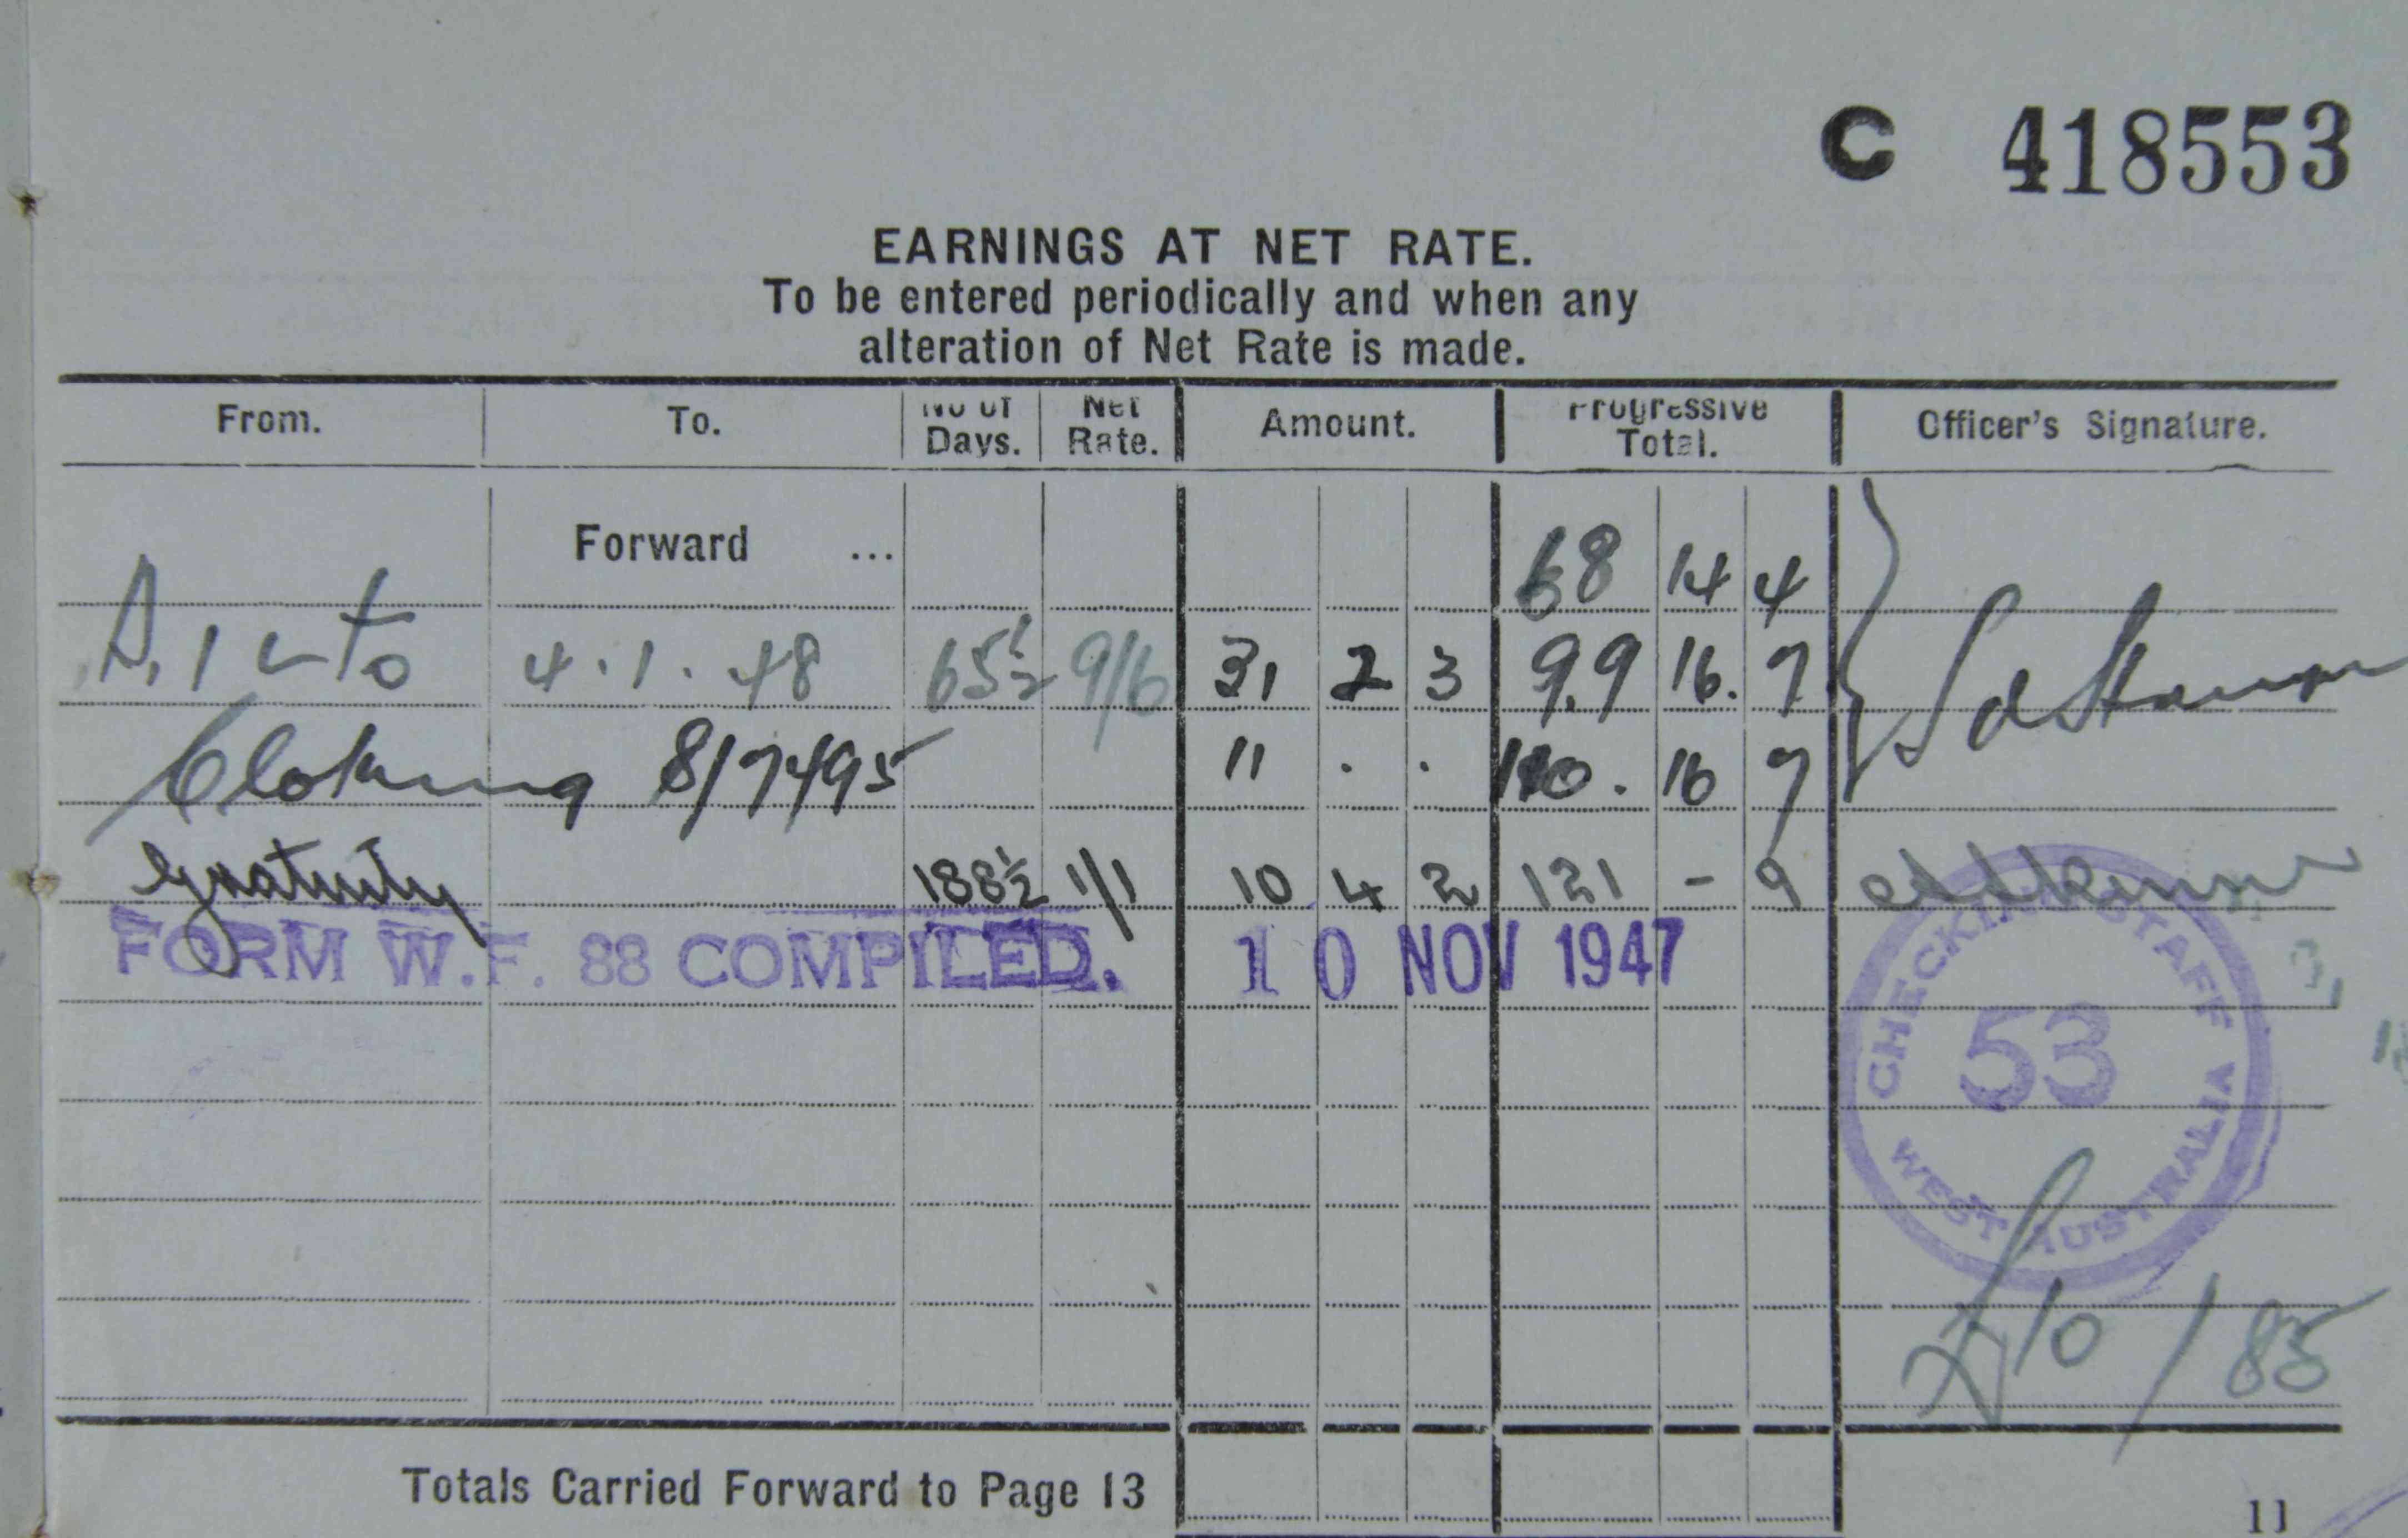 C 418553
EARNINGS AT NET RATE.
To be entered periodically and when any
alteration of Net Rate is made.
From. To. No of Days. Net Rate. Amount. Progressive Total. Officer's Signature.
Forward ... 68 14 4
4.1.48 65½ 9/6 31 2 3 99 16. 7
Clothing 8/7495 11 . . 110. 16 7
Gratuity 188½ 1/1 10 4 2 121 - 9
FORM W.F. 88 COMPILED. 10 NOV 1947
CHECKING STAFF
53
WEST AUSTRALIA
/ 85
Totals Carried Forward to Page 13
11